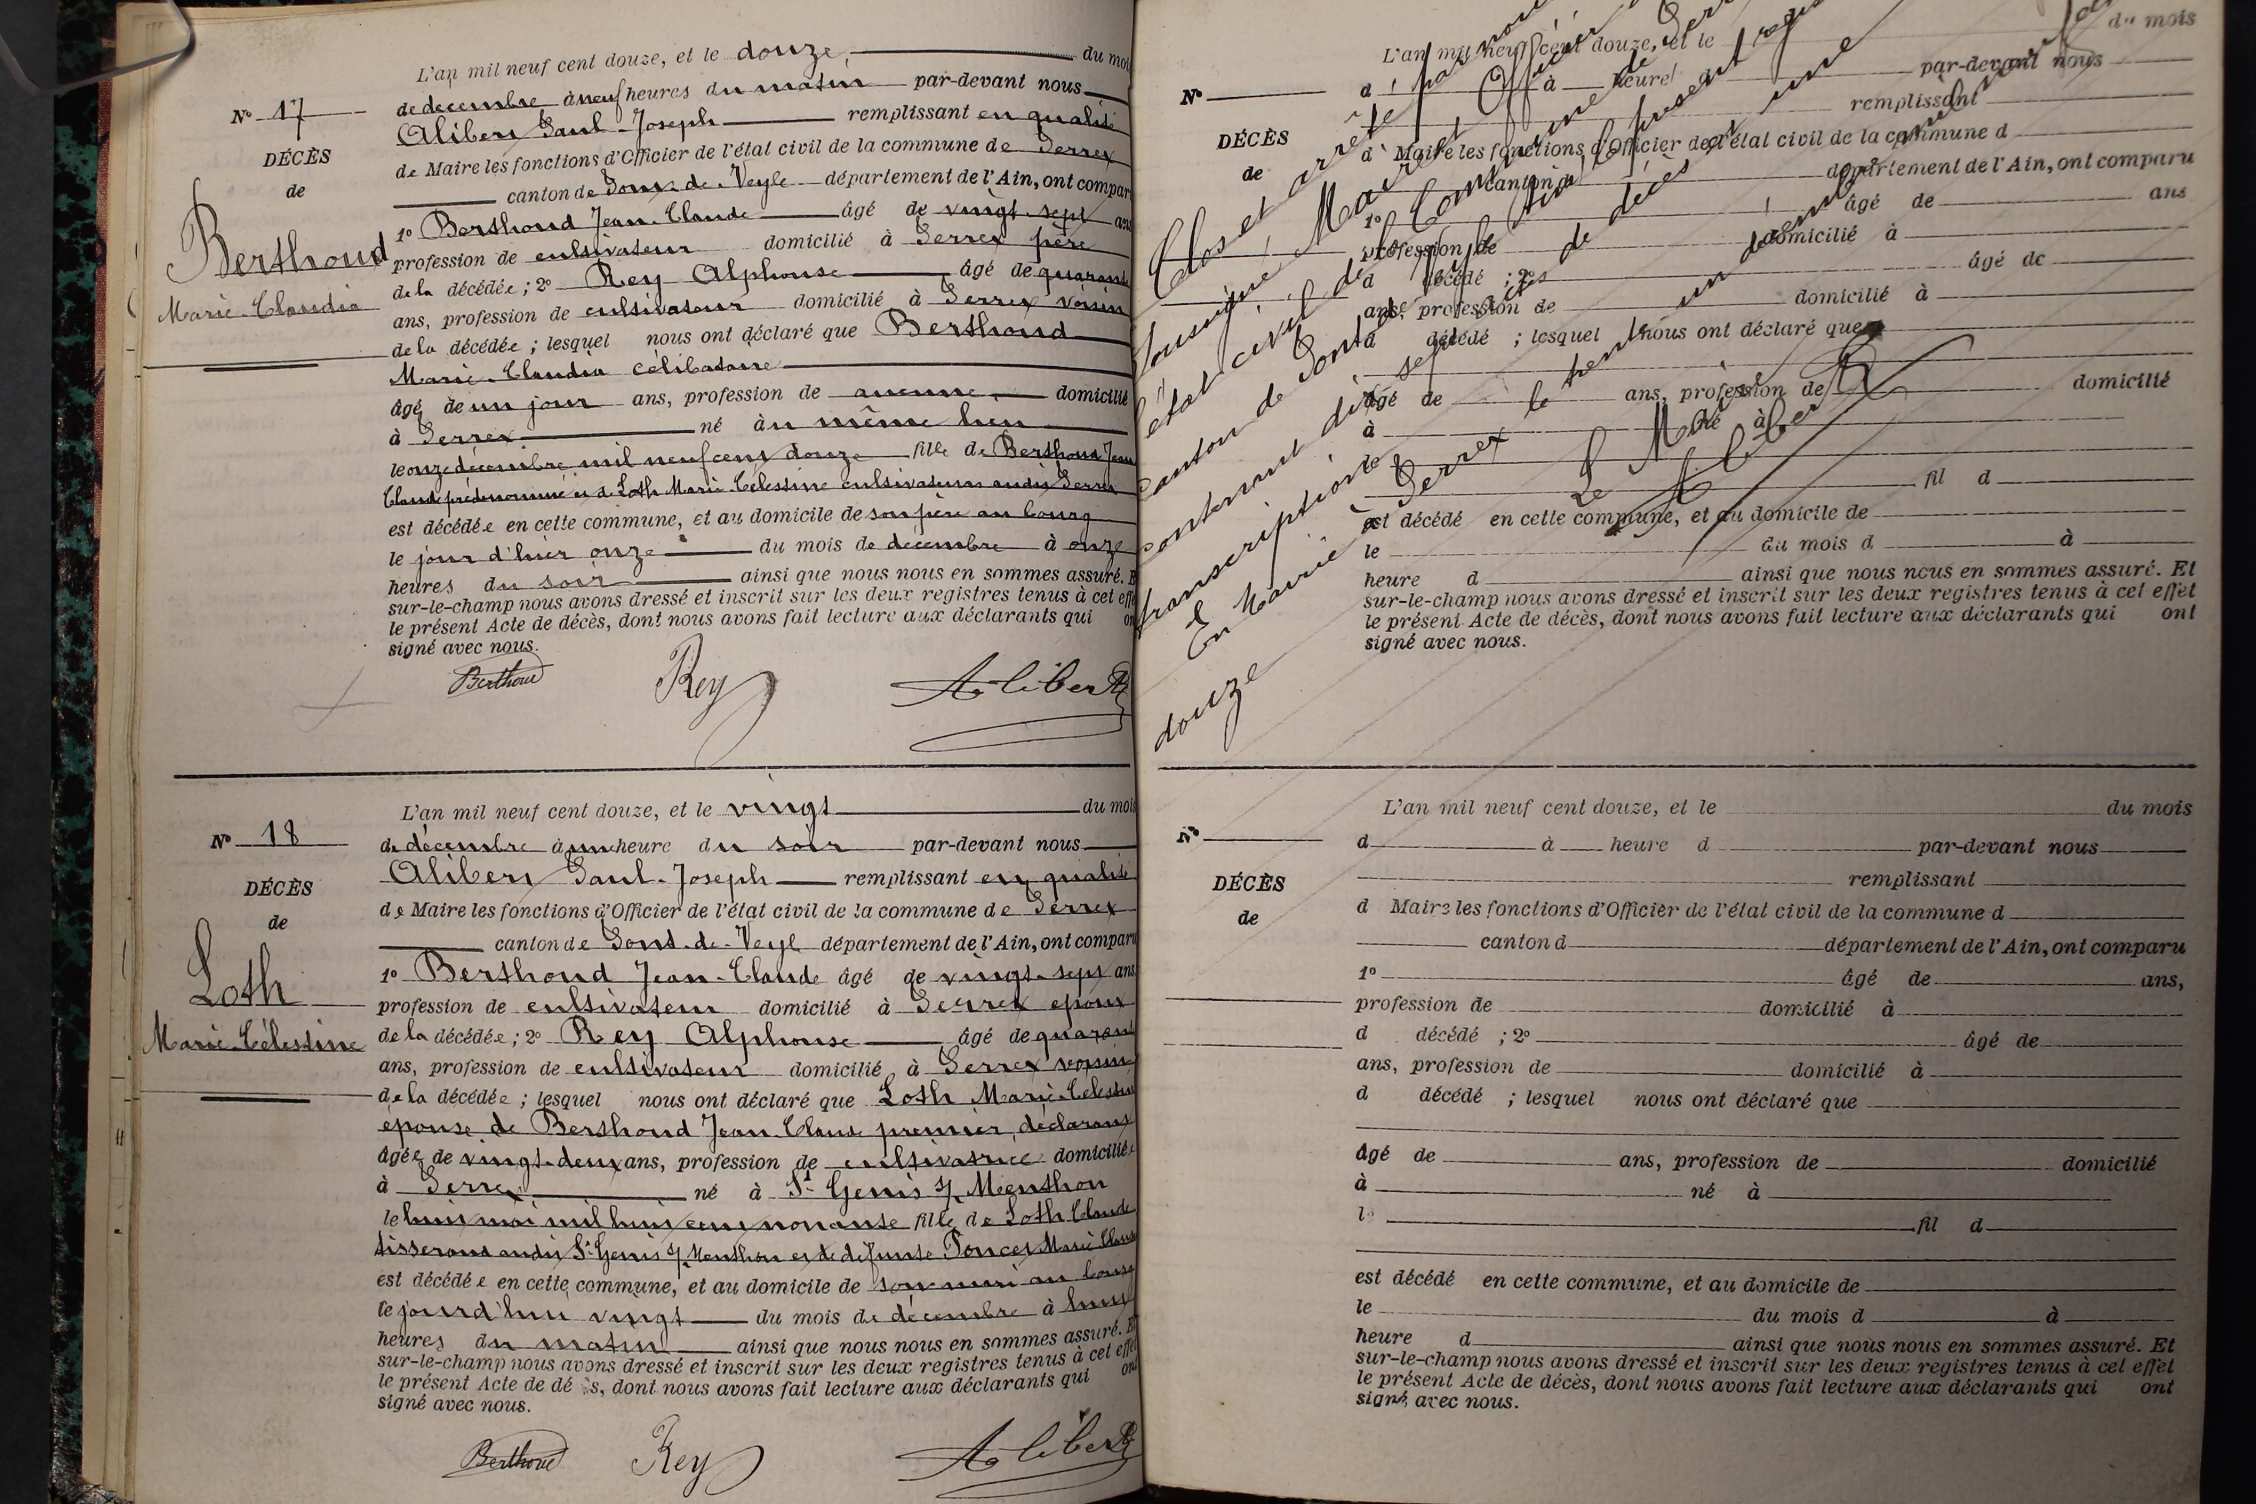 L'an mil neuf cent douze, et le douze, du mois
No 17
de decembre à neuf heures du matin par-devant nous
Alibert Paul-Joseph remplissant en qualité
DÉCÈS
de Maire les fonctions d'Officier de l'état civil de la commune de Perrex
de
canton de Pont-de-Veyle département de l'Ain, ont comparu
Berthoud
Marie-Claudia
1o Berthoud Jean-Claude âgé de vingt-sept ans
profession de cultivateur domicilié à Perrex père
de la décédée ; 2o Rey Alphonse âgé de quarante
ans, profession de cultivateur domicilié à Perrex voisin
de la décédée ; lesquel nous ont déclaré que Berthoud
Marie-Claudia célibataire
âgé de un jour ans, profession de aucune domicilié
à Perrex né au même lieu
le onze décembre mil neuf cent douze fille de Berthoud Jean
Claude prédenommé et de Loth Marie-Célestine cultivateurs audit Perrex
est décédée en cette commune, et au domicile de son père au bourg
le jour d'hier onze du mois de decembre à onze
heures du soir ainsi que nous nous en sommes assuré. Et
sur-le-champ nous avons dressé et inscrit sur les deux registres tenus à cet effet
le présent Acte de décès, dont nous avons fait lecture aux déclarants qui ont
signé avec nous.
Berthoud Rey Alibert
L'an mil neuf cent douze, et le vingt du mois
No 18
de décembre à une heure du soir par-devant nous
Alibert Paul-Joseph remplissant en qualité
DÉCÈS
de Maire les fonctions d'Officier de l'état civil de la commune de Perrex
de
canton de Pont-de-Veyle département de l'Ain, ont comparu
Loth
Marie-Célestine
1o Berthoud Jean-Claude âgé de vingt-sept ans
profession de cultivateur domicilié à Perrex epoux
de la décédée ; 2o Rey Alphonse âgé de quarante
ans, profession de cultivateur domicilié à Perrex voisin
de la décédée ; lesquel nous ont déclaré que Loth Marie-Célestine
épouse de Berthoud Jean-Claude premier, déclarant
âgée de vingt-deux ans, profession de cultivatrice domiciliée
à Perrex né à St Genis s/ Menthon
le huit mai mil huit cent nonante fille de Loth Claude
tisserand audit St Genis s/ Menthon et de defunte Poncet Marie Claude
est décédée en cette commune, et au domicile de son mari au bourg
le jourd'hui vingt du mois de décembre à huit
heures du matin ainsi que nous nous en sommes assuré. Et
sur-le-champ nous avons dressé et inscrit sur les deux registres tenus à cet effet
le présent Acte de décès, dont nous avons fait lecture aux déclarants qui ont
signé avec nous.
Berthoud Rey Alibert
L'an mil neuf cent douze, et le du mois
No
d à heure d par-devant nous
remplissant
DÉCÈS
d Maire les fonctions d'Officier de l'état civil de la commune d
de
canton d département de l'Ain, ont comparu
1o âgé de ans
profession de domicilié à
d décédé ; 2o âgé de
ans, profession de domicilié à
d décédé ; lesquel nous ont déclaré que
âgé de ans, profession de domicilié
à né à
le
fil d
est décédé en cette commune, et au domicile de
le du mois d à
heure d ainsi que nous nous en sommes assuré. Et
sur-le-champ nous avons dressé et inscrit sur les deux registres tenus à cet effet
le présent Acte de décès, dont nous avons fait lecture aux déclarants qui ont
signé avec nous.
Clos et arrêté par nous
soussigné, Maire et Officier de
l'état civil de la Commune de Perrex
canton de Pont de Veyle (Ain) le présent registre
contenant dix sept actes de décès et une
transcription
En Mairie à Perrex le trente un décembre mil neuf cent
douze
Le Maire
Alibert
L'an mil neuf cent douze, et le du mois
No
d à heure d par-devant nous
remplissant
DÉCÈS
d Maire les fonctions d'Officier de l'état civil de la commune d
de
canton d département de l'Ain, ont comparu
1o âgé de ans,
profession de domicilié à
d décédé ; 2o âgé de
ans, profession de domicilié à
d décédé ; lesquel nous ont déclaré que
âgé de ans, profession de domicilié
à né à
le fil d
est décédé en cette commune, et au domicile de
le du mois d à
heure d ainsi que nous nous en sommes assuré. Et
sur-le-champ nous avons dressé et inscrit sur les deux registres tenus à cet effet
le présent Acte de décès, dont nous avons fait lecture aux déclarants qui ont
signé avec nous.